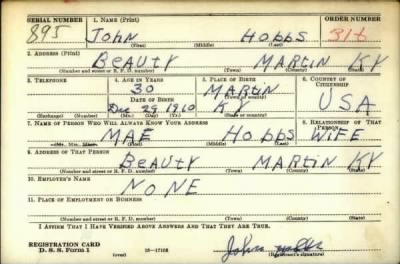 SERIAL NUMBER 1. NAME (Print) ORDER NUMBER
895 JOHN HOBBS 316
(First) (Middle) (Last)
2. ADDRESS (Print)
BEAUTY MARTIN KY
(Number and street or R. F. D. number) (Town) (County) (State)
3. TELEPHONE 4. AGE IN YEARS 5. PLACE OF BIRTH 6. COUNTRY OF CITIZENSHIP
30 MARTIN
DATE OF BIRTH (Town or county)
Dec 29 1910 KY USA
(Exchange) (Number) (Mo.) (Day) (Yr.) (State or country)
7. NAME OF PERSON WHO WILL ALWAYS KNOW YOUR ADDRESS 8. RELATIONSHIP OF THAT PERSON
MAE HOBBS WIFE
(Mr., Mrs., Miss) (First) (Middle) (Last)
9. ADDRESS OF THAT PERSON
BEAUTY MARTIN KY
(Number and street or R. F. D. number) (Town) (County) (State)
10. EMPLOYER'S NAME
NONE
11. PLACE OF EMPLOYMENT OR BUSINESS
(Number and street or R. F. D. number) (Town) (County) (State)
I AFFIRM THAT I HAVE VERIFIED ABOVE ANSWERS AND THAT THEY ARE TRUE.
REGISTRATION CARD
D. S. S. Form 1 (over) 16-17105 John Hobbs
(Registrant's signature)